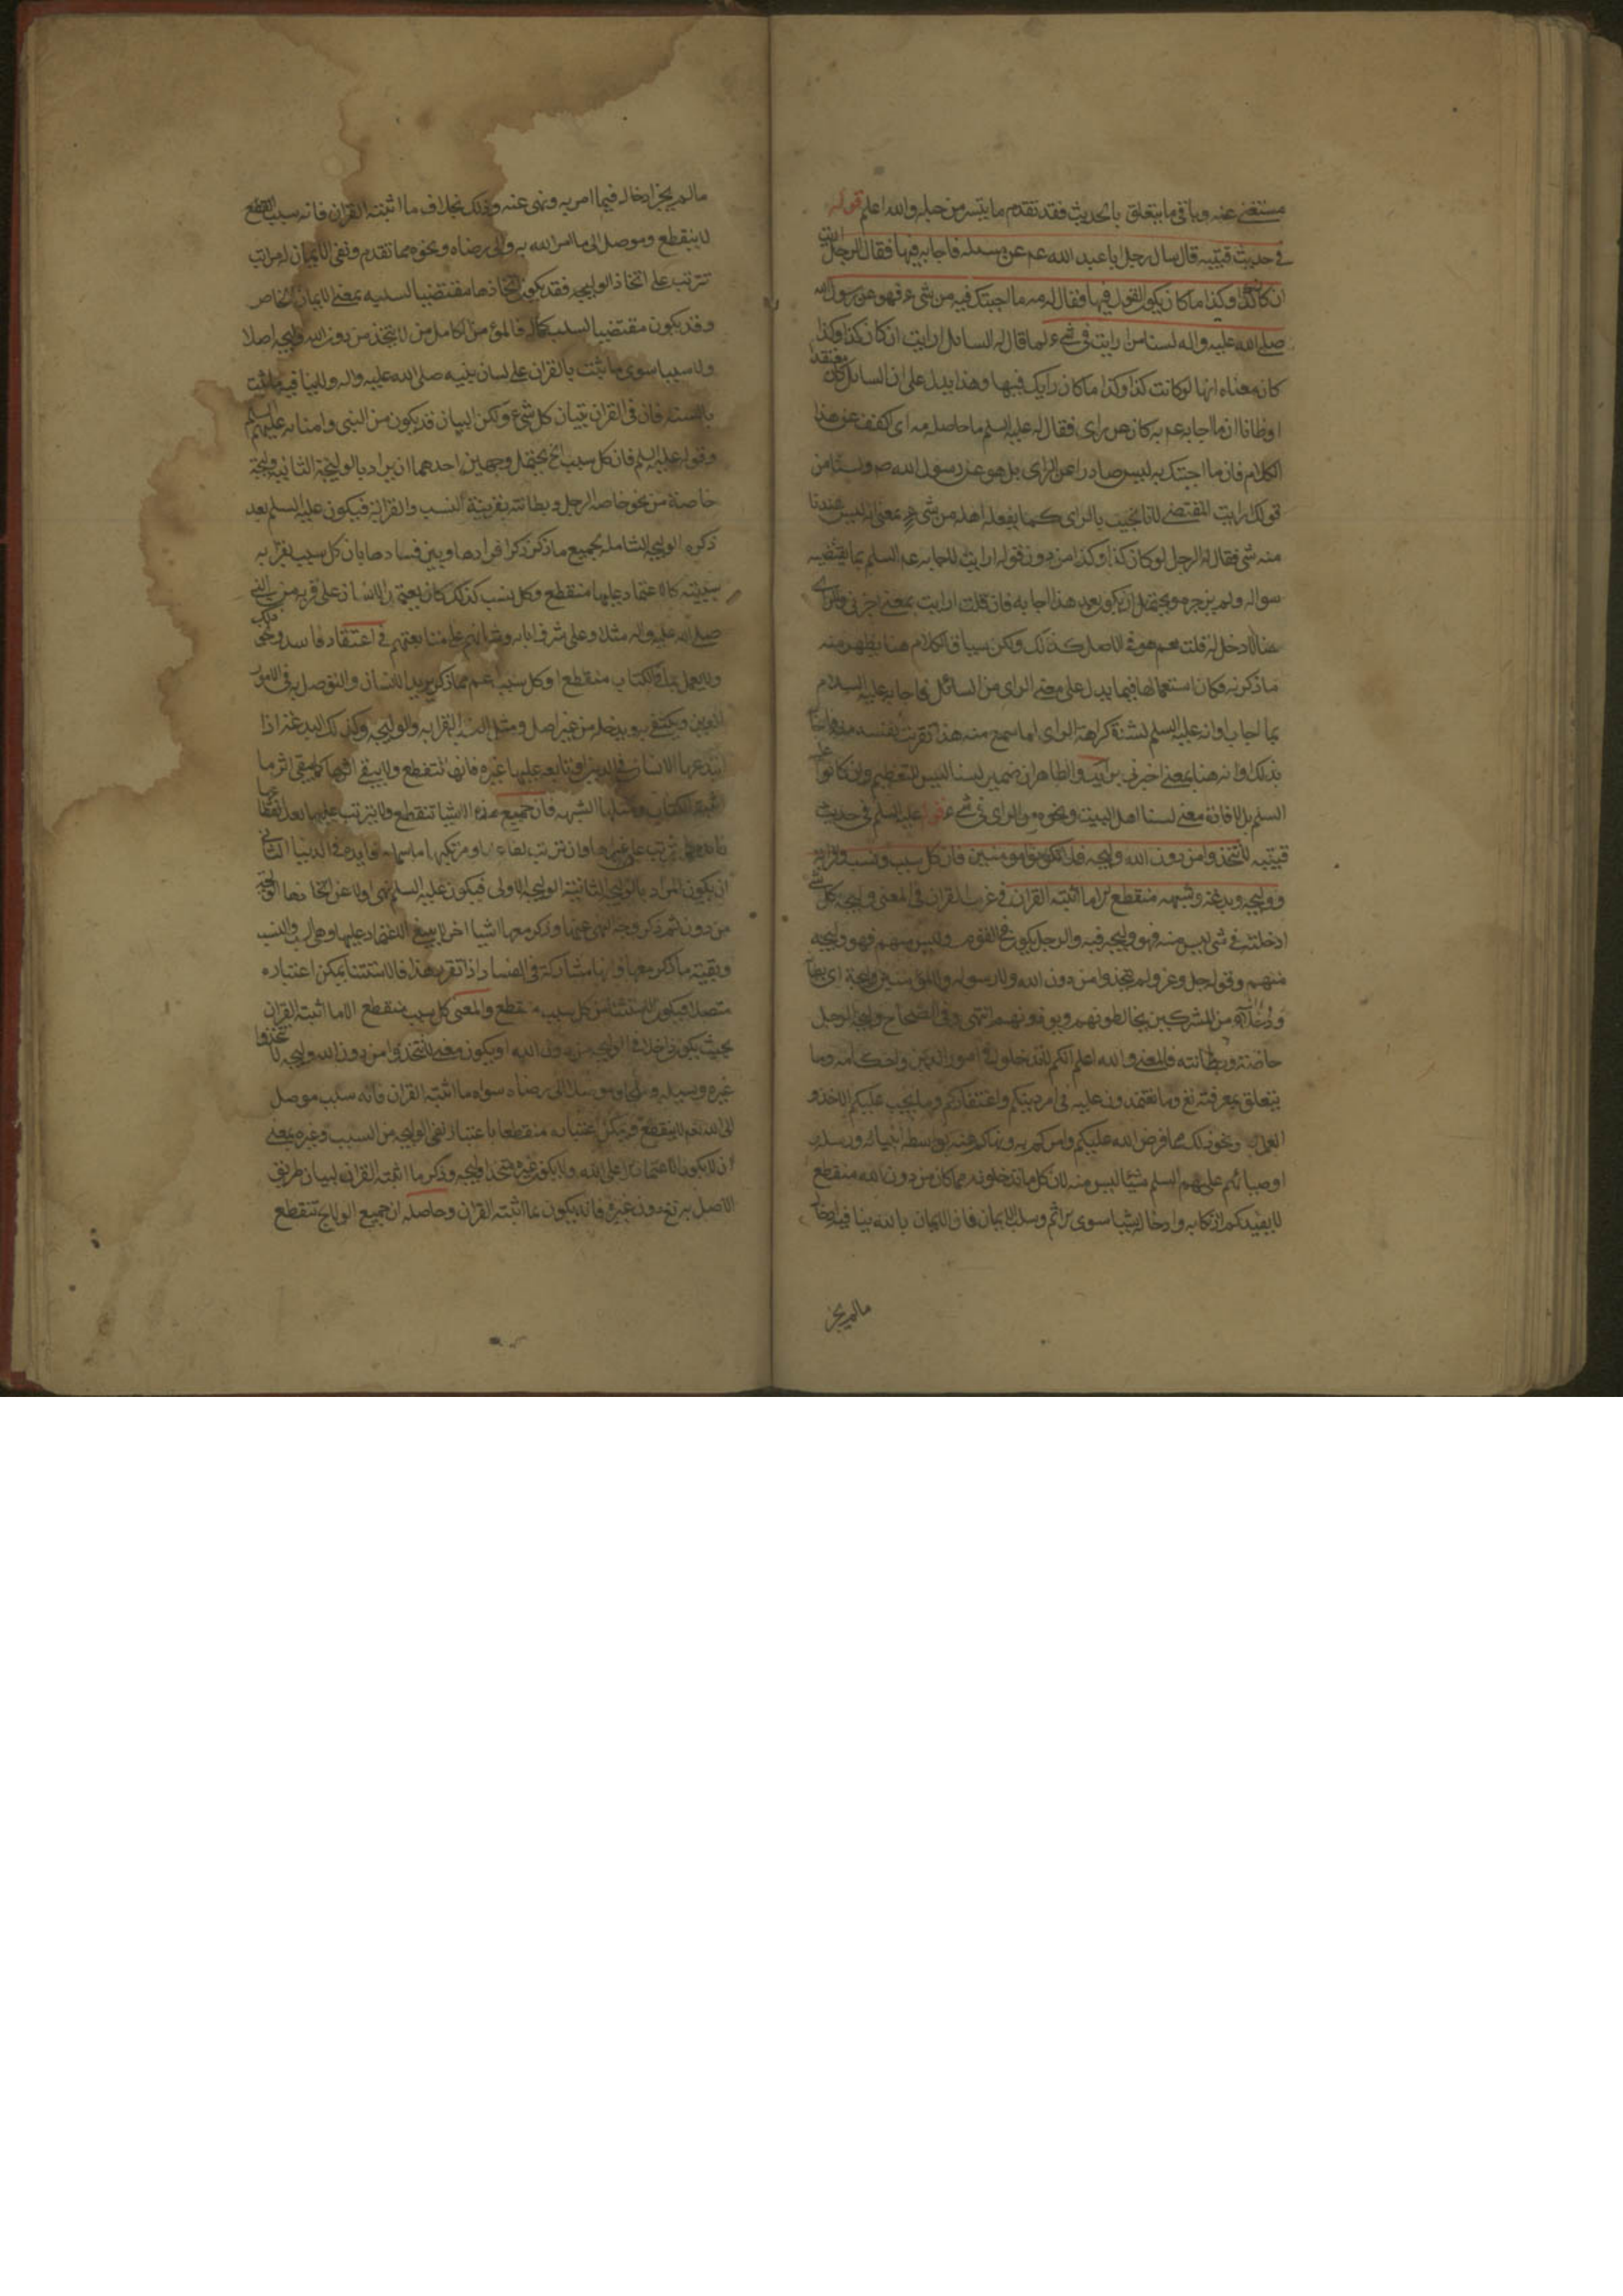 مستغنى عنه وباقى ما يتعلق بالحديث فقد تقدم ما يتيسر من حله والله اعلم قوله
فى حديث قتيبه قال سال رجل ابا عبد الله عم عن مسئله فاجابه فيها فقال الرجل ارايت
ان كان كذا وكذا ما كان يكون القول فيها فقال له مه ما اجبتك فيه من شىء فهو عن رسول الله
صلى الله عليه واله لسنا من ارايت فى شىء لما قال له السائل ارايت ان كان كذا وكذا
كان معناه انها لو كانت كذا وكذا ما كان رايك فيها وهذا يدل على ان السائل كان معتقدا
او ظانا ان ما اجابه عم به كان عن راى فقال له عليه السلم ما حاصله مه اى اكفف عن هذا
الكلام فان ما اجبتك به ليس صادرا عن الراى بل هو عن رسول الله ص ولسنا من
قولك ارايت المقتضى لانا نجيب بالراى كما يفعله اهله من شىء بمعنى انه ليس عندنا
منه شى فقال له الرجل لو كان كذا وكذا من دون قوله ارايت لاجابه عم السلم بما يقتضيه
سواله ولم يزجره ويحتمل ان يكون بعد هذا اجابه فان قلت ارايت بمعنى اخبرنى والراى
هنا لا دخل له قلت نعم هو فى الاصل كذلك ولكن سياق الكلام هنا يظهر منه
ما ذكرته فكان استعمالها فيما يدل على معنى الراى من السائل فاجابه عليه السلام
بما اجاب او انه عليه السلم لشدة كراهة الراى لما سمع منه هذا نفرت نفسه
بذلك وانه هنا بمعنى اخبرنى برايك والظاهر ان ضمير لسنا ليس للتعظيم وان كانوا
السلم بل لافادة معنى لسنا اهل البيت ونحوه من الراى فى شىء قوله عليه السلم فى حديث
قتيبه لا تتخذوا من دون الله وليجه فلا تكونوا مومنين فان كل سبب ونسب وقرابه
ووليجه وبدعه وشبهه منقطع الا ما اثبته القران فى غريب القران فى المعنى وليجه كل شى
ادخلته فى شى ليس منه فهو وليجه فيه والرجل يكون فى القوم وليس منهم فهو وليجه
منهم وقوله جل وعز ولم يتخذوا من دون الله ولا رسوله ولا المؤمنين وليجة اى بطانة
ودخلاء من المشركين يخالطونهم ويودونهم انتهى وفى الصحاح وليجه الرجل
خاصته وبطانته فالمعنى والله اعلم انكم لا تدخلوا فى امور الدين واحكامه وما
يتعلق بمعرفته تع وما تعتمدون عليه فى امر دينكم واعتقادكم وما يجب عليكم الاخذ و
العمل به ونحو ذلك مما فرض الله عليكم وامركم به ونهاكم عنه بواسطه انبيائه ورسله و
اوصيائهم عليهم السلم شيئا ليس منه لان كل ما تدخلونه مما كان من دون الله منقطع
لا يفيدكم ارتكابه وادخاله شيئا سوى الاثم وسلب الايمان فان الايمان بالله ينافيه ادخال
مالم يجز
مالم يجز ادخاله فيما امر به ونهى عنه وذلك بخلاف ما اثبته القران فانه سبب
لا ينقطع وموصل الى ما امر الله به والى رضاه ونحوه مما تقدم ونفى الايمان له مراتب
تترتب على اتخاذ الوليجه فقد يكون اتخاذها مقتضيا لسلبه بمعنى الايمان الخاص
وقد يكون مقتضيا لسلب كماله فالمؤمن الكامل من لا يتخذ من دون الله وليجه اصلا
ولا سببا سوى ما ثبت بالقران على لسان نبيه صلى الله عليه واله ولا ينافيه ما ثبت
بالسنه فان فى القران تبيان كل شىء ولكن البيان قد يكون من النبى وامنائه عليهم السلم
وقوله عليه السلم فان كل سبب الخ يحتمل وجهين احدهما ان يراد بالوليجة الثانيه وليجة
خاصة من نحو خاصه الرجل وبطانته بقرينة النسب والقرابه فيكون عليه السلم بعد
ذكره الوليجه الشامله لجميع ما ذكر ذكر افرادها وبين فسادها بان كل سبب
سببيته كالاعتماد عليها منقطع وكل نسب كذلك كان يعتمد الانسان على قربه من النبى
صلى الله عليه واله مثلا وعلى شرف ابائه فى اعتقاد فاسد
ولا يعمل بما فى الكتاب منقطع او كل سبب اعم مما ذكر
ويكتفى من غير اصل ومثل النسب القرابه والوليجه وكذلك البدعه اذا
ابتدعها الانسان فى الدين او تابعه عليها غيره فانها تنقطع ولا يبقى اثرها كما يبقى اثر ما
اثبته الكتاب ومثلها الشبهه فان جميع هذه الاشيا تنقطع ولا يترتب عليها بعد انقطاعها
الثانى
ان يكون المراد بالوليجه الثانيه الوليجه الاولى فيكون عليه السلم نهى اولا عن اتخاذها
من دون ثم ذكر وجه النهى عنها وذكر معها اشيا اخر لا ينبغى الاعتماد عليها وهى السبب والنسب
وبقية ما ذكر معها وانها مشاركة فى الفساد اذا تقرر هذا فالاستثنا يمكن اعتباره
متصلا فيكون الاستثنا من كل سبب منقطع والمعنى كل سبب منقطع الا ما اثبته القران
بحيث يكون داخلا فى الوليجه من دون الله او يكون معنى لا تتخذوا من دون الله وليجه لا تتخذوا
غيره وسيله موصلا الى رضاه سواه ما اثبته القران فانه سبب موصل
الى الله تعم لا ينقطع ويمكن اعتباره منقطعا باعتبار نفى الوليجه من السبب وغيره بمعنى
ان لا يكون الاعتماد الا على الله ولا يكون غيره متخذا وليجه وذكر ما اثبته القران لبيان طريق
الاصل به تع دون غيره فانه يكون مما اثبته القران وحاصله ان جميع الولايج تنقطع